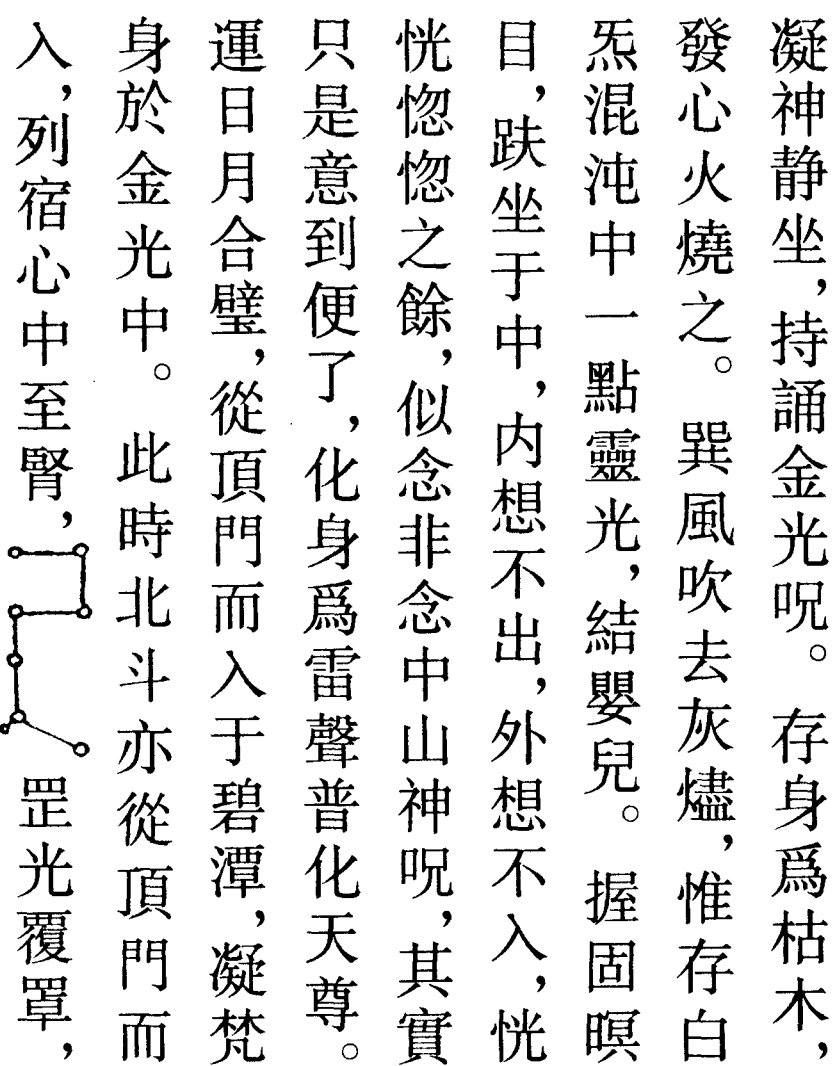 凝神静坐，持誦金光呪。存身爲枯木，
發心火燒之。巽風吹去灰燼，惟存白
炁混沌中一點靈光，結嬰兒。握固瞑
目，趺坐于中，内想不出，外想不入，恍
恍惚惚之餘，似念非念中山神呪，其實
只是意到便了，化身爲雷聲普化天尊。
運日月合璧，從頂門而入于碧潭，凝梵
身於金光中。此時北斗亦從頂門而
入，列宿心中至腎，罡光覆罩，